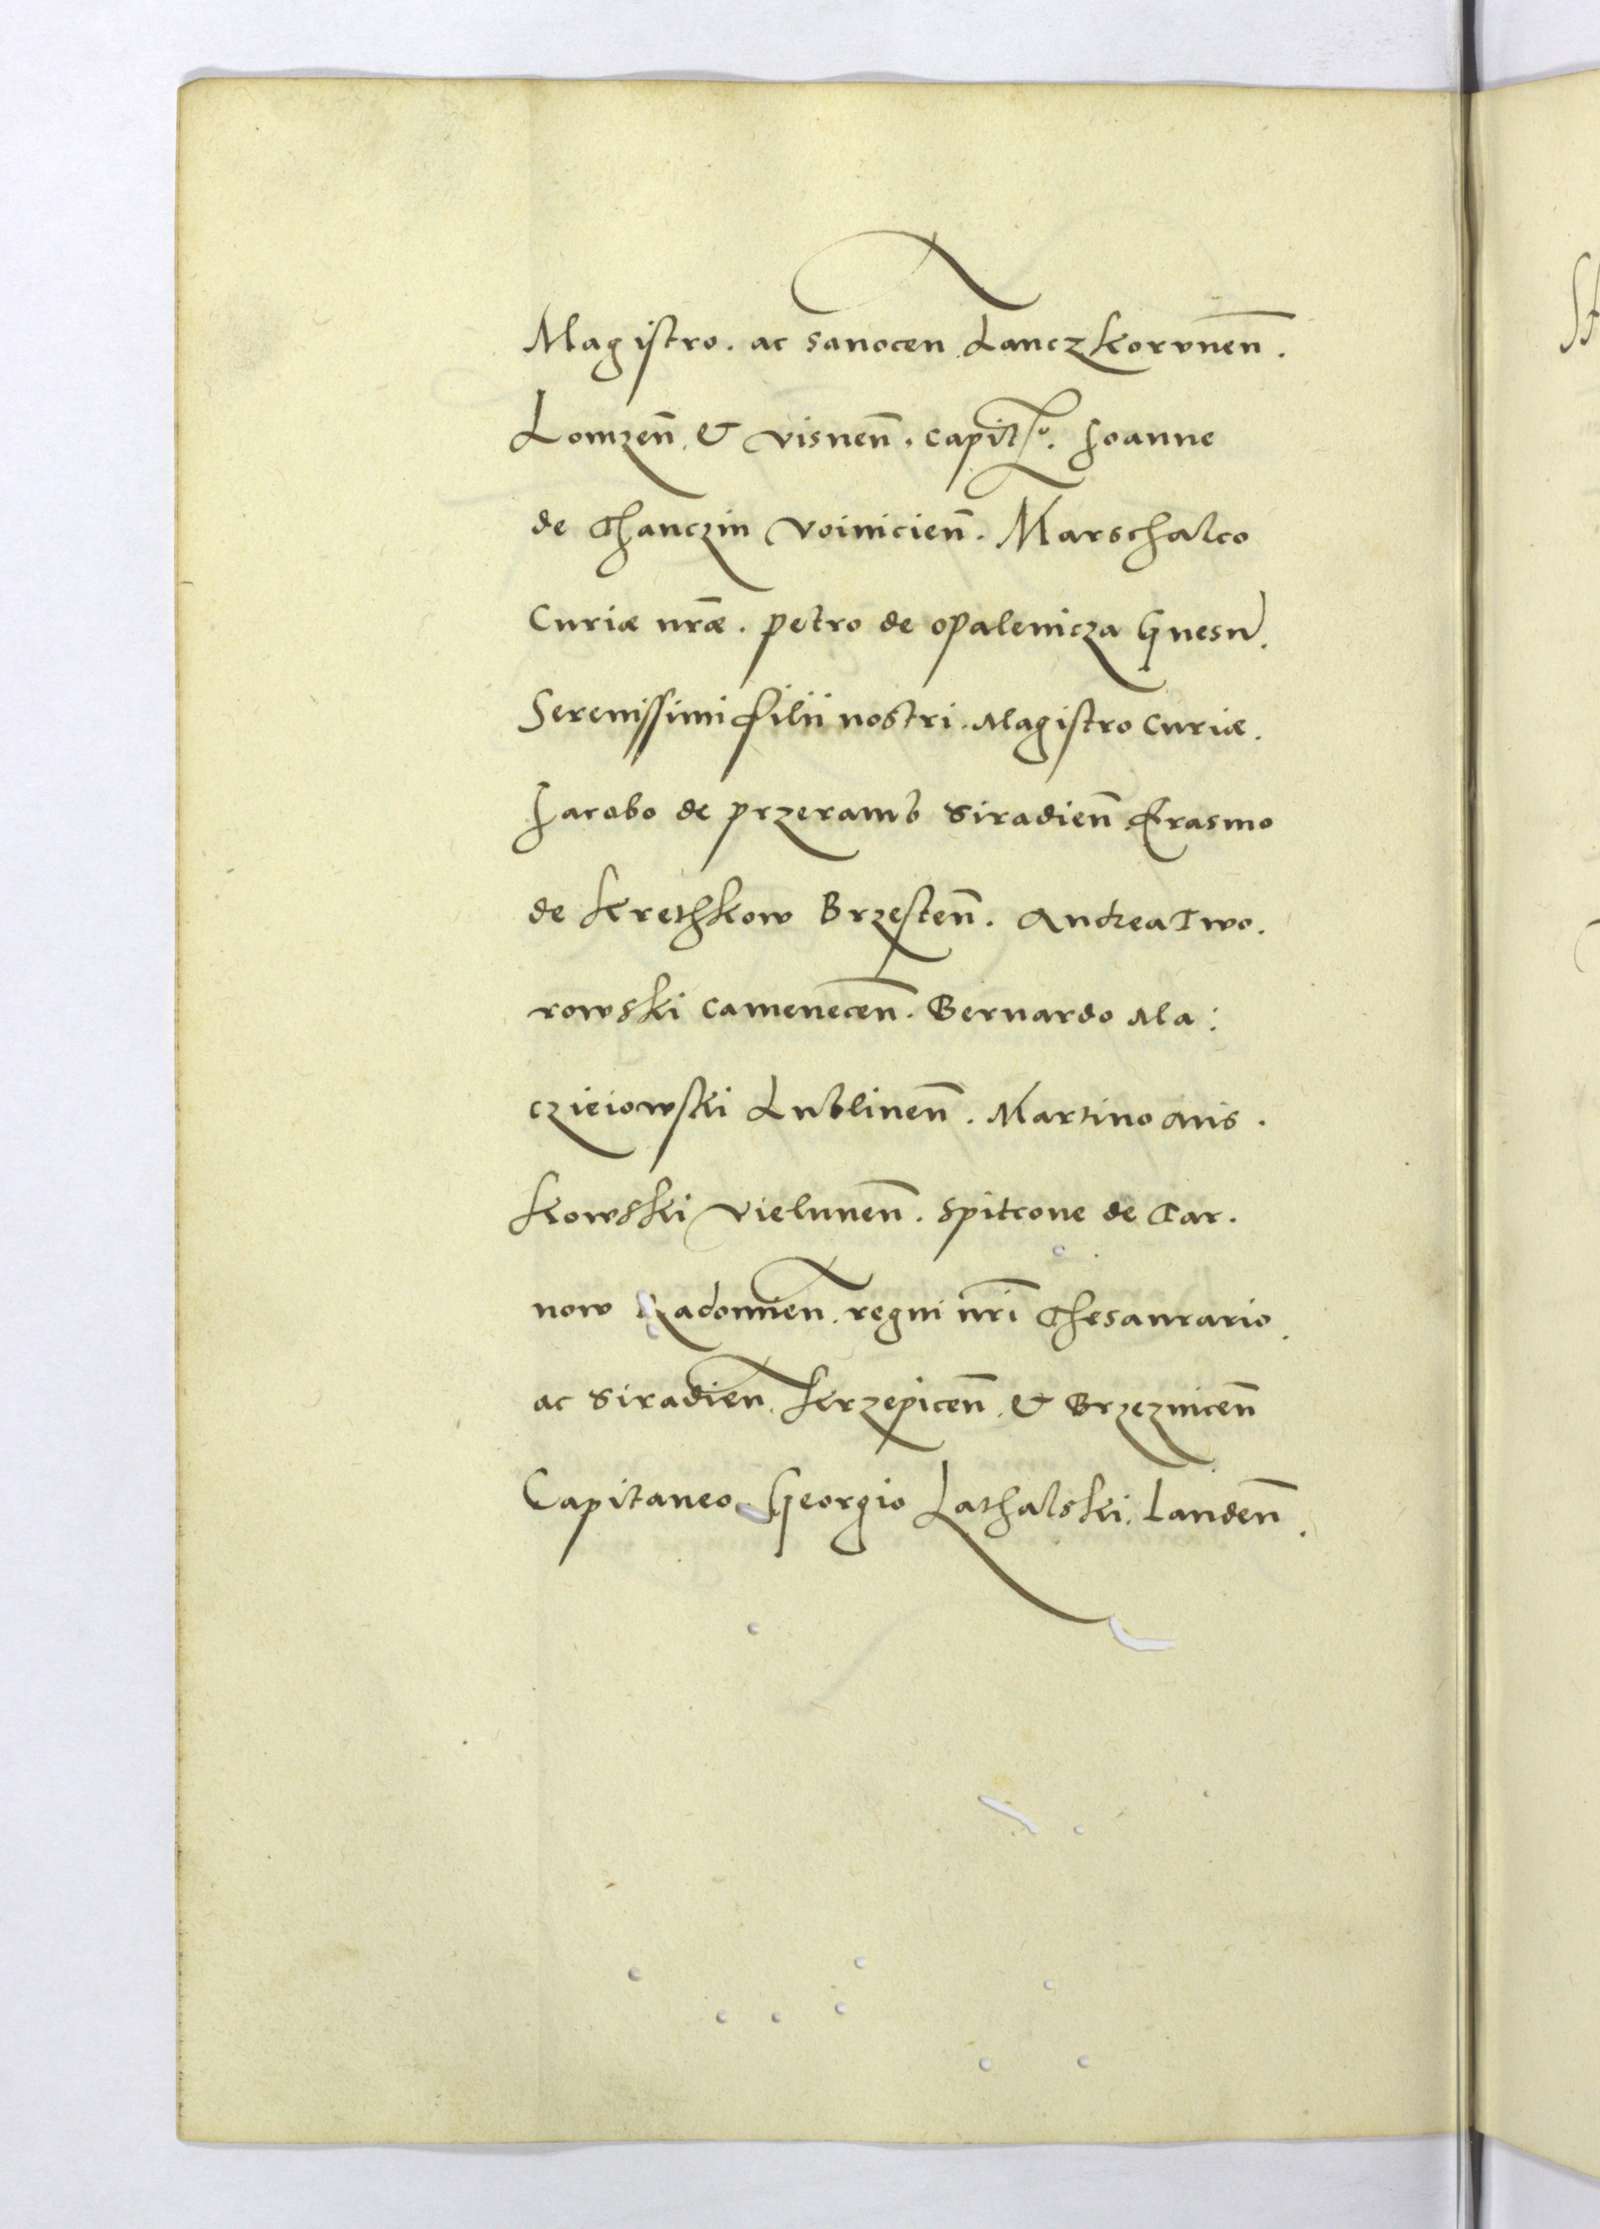 Magistro. ac Sanocen̄ Lanczkorunen̄.
Lomzen̄. & visnen̄. Joanne
de Thanczin Voinicien̄. Marschalco
Curiæ nr̄æ. petro de opalenicza Gnesn̄.
Serenissimi filii nostri. Magistro Curiæ.
Jacobo de przeramb Siradien̄ Erasmo
de Krethkow Brzesten̄. Andrea Two.
rowski Camenecen̄. Bernardo Ma:
czieiowski Lublinen̄. Martino Mis.
kowski vielunen̄. Spitcone de Tar.
now Radomien̄. regni nr̄i Thesaurario.
ac Siradien̄. Krzepicen̄. & Brzeznicen̄
Capitaneo. Georgio Lathalski. Landen̄.